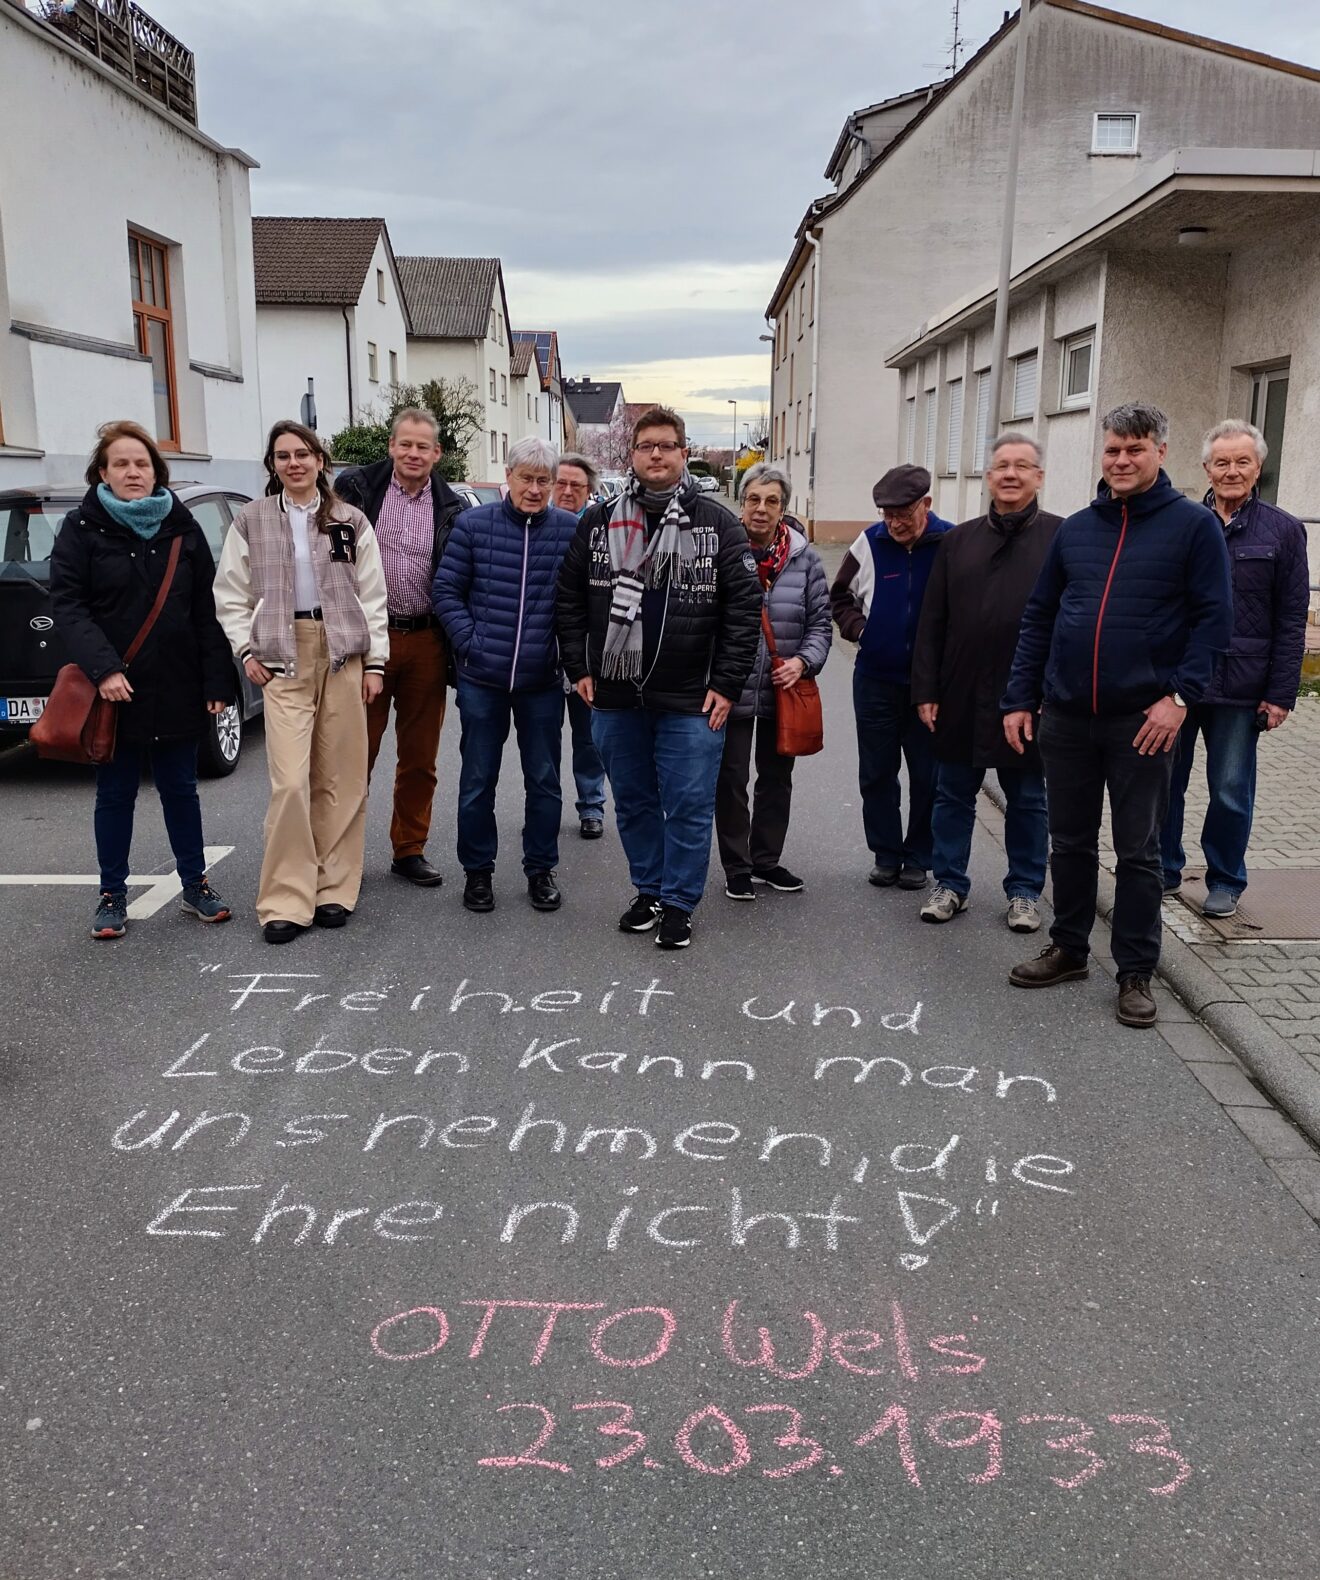 "Freiheit und
Leben kann man
uns nehmen, die
Ehre nicht!"
OTTO Wels
23.03.1933
R
DA